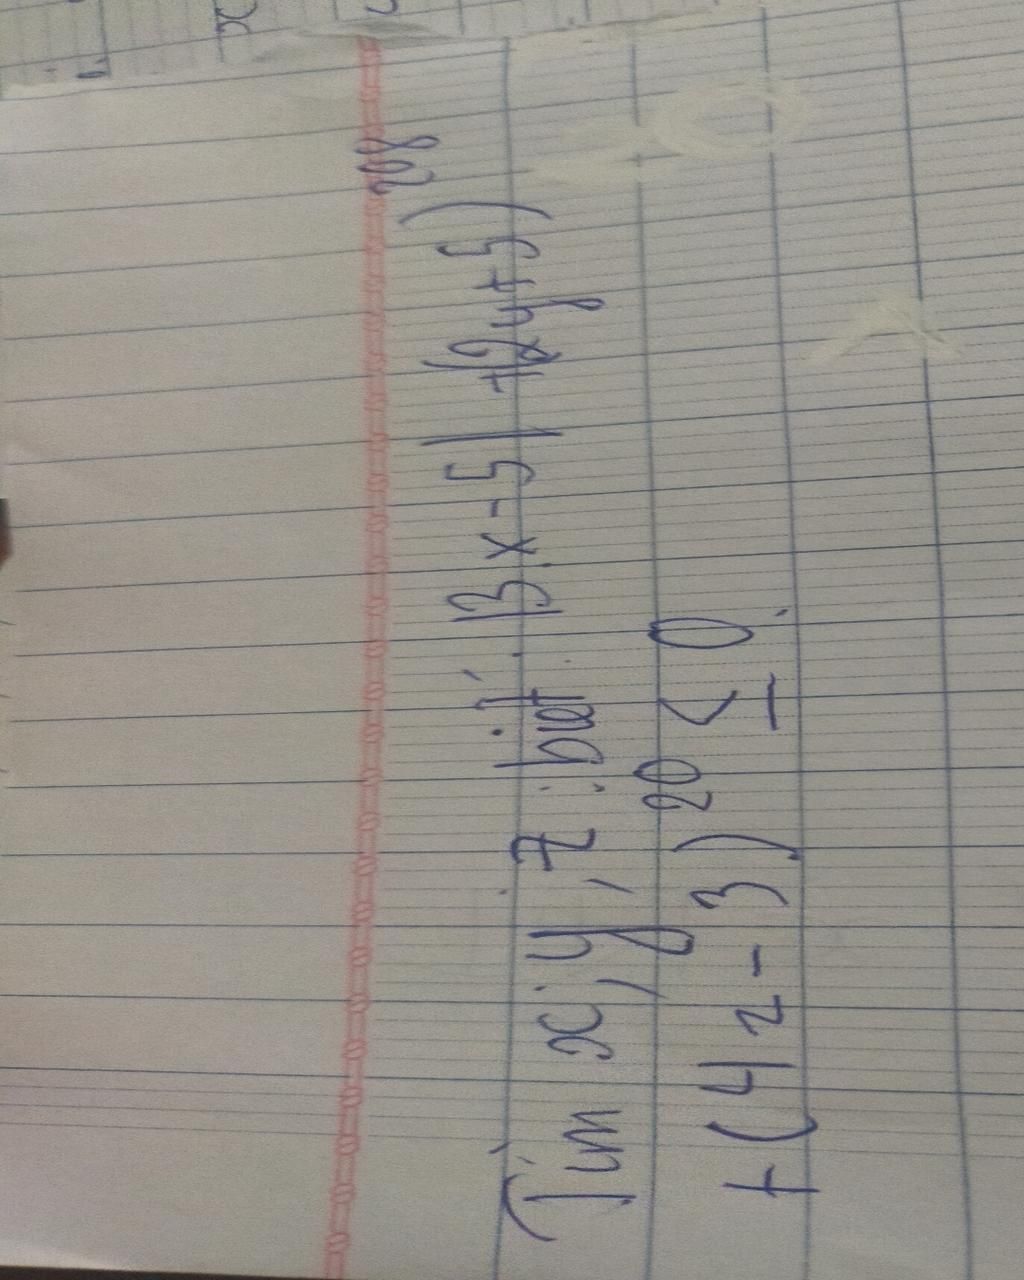 Tìm x; y, z : biết : |3.x - 5| + (2y + 5)²⁰⁸
+ (4z - 3)²⁰ ≤ 0.